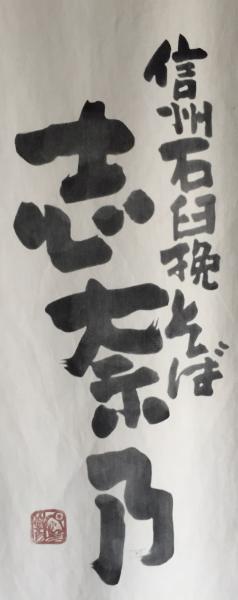 信州石臼挽そば
志奈乃